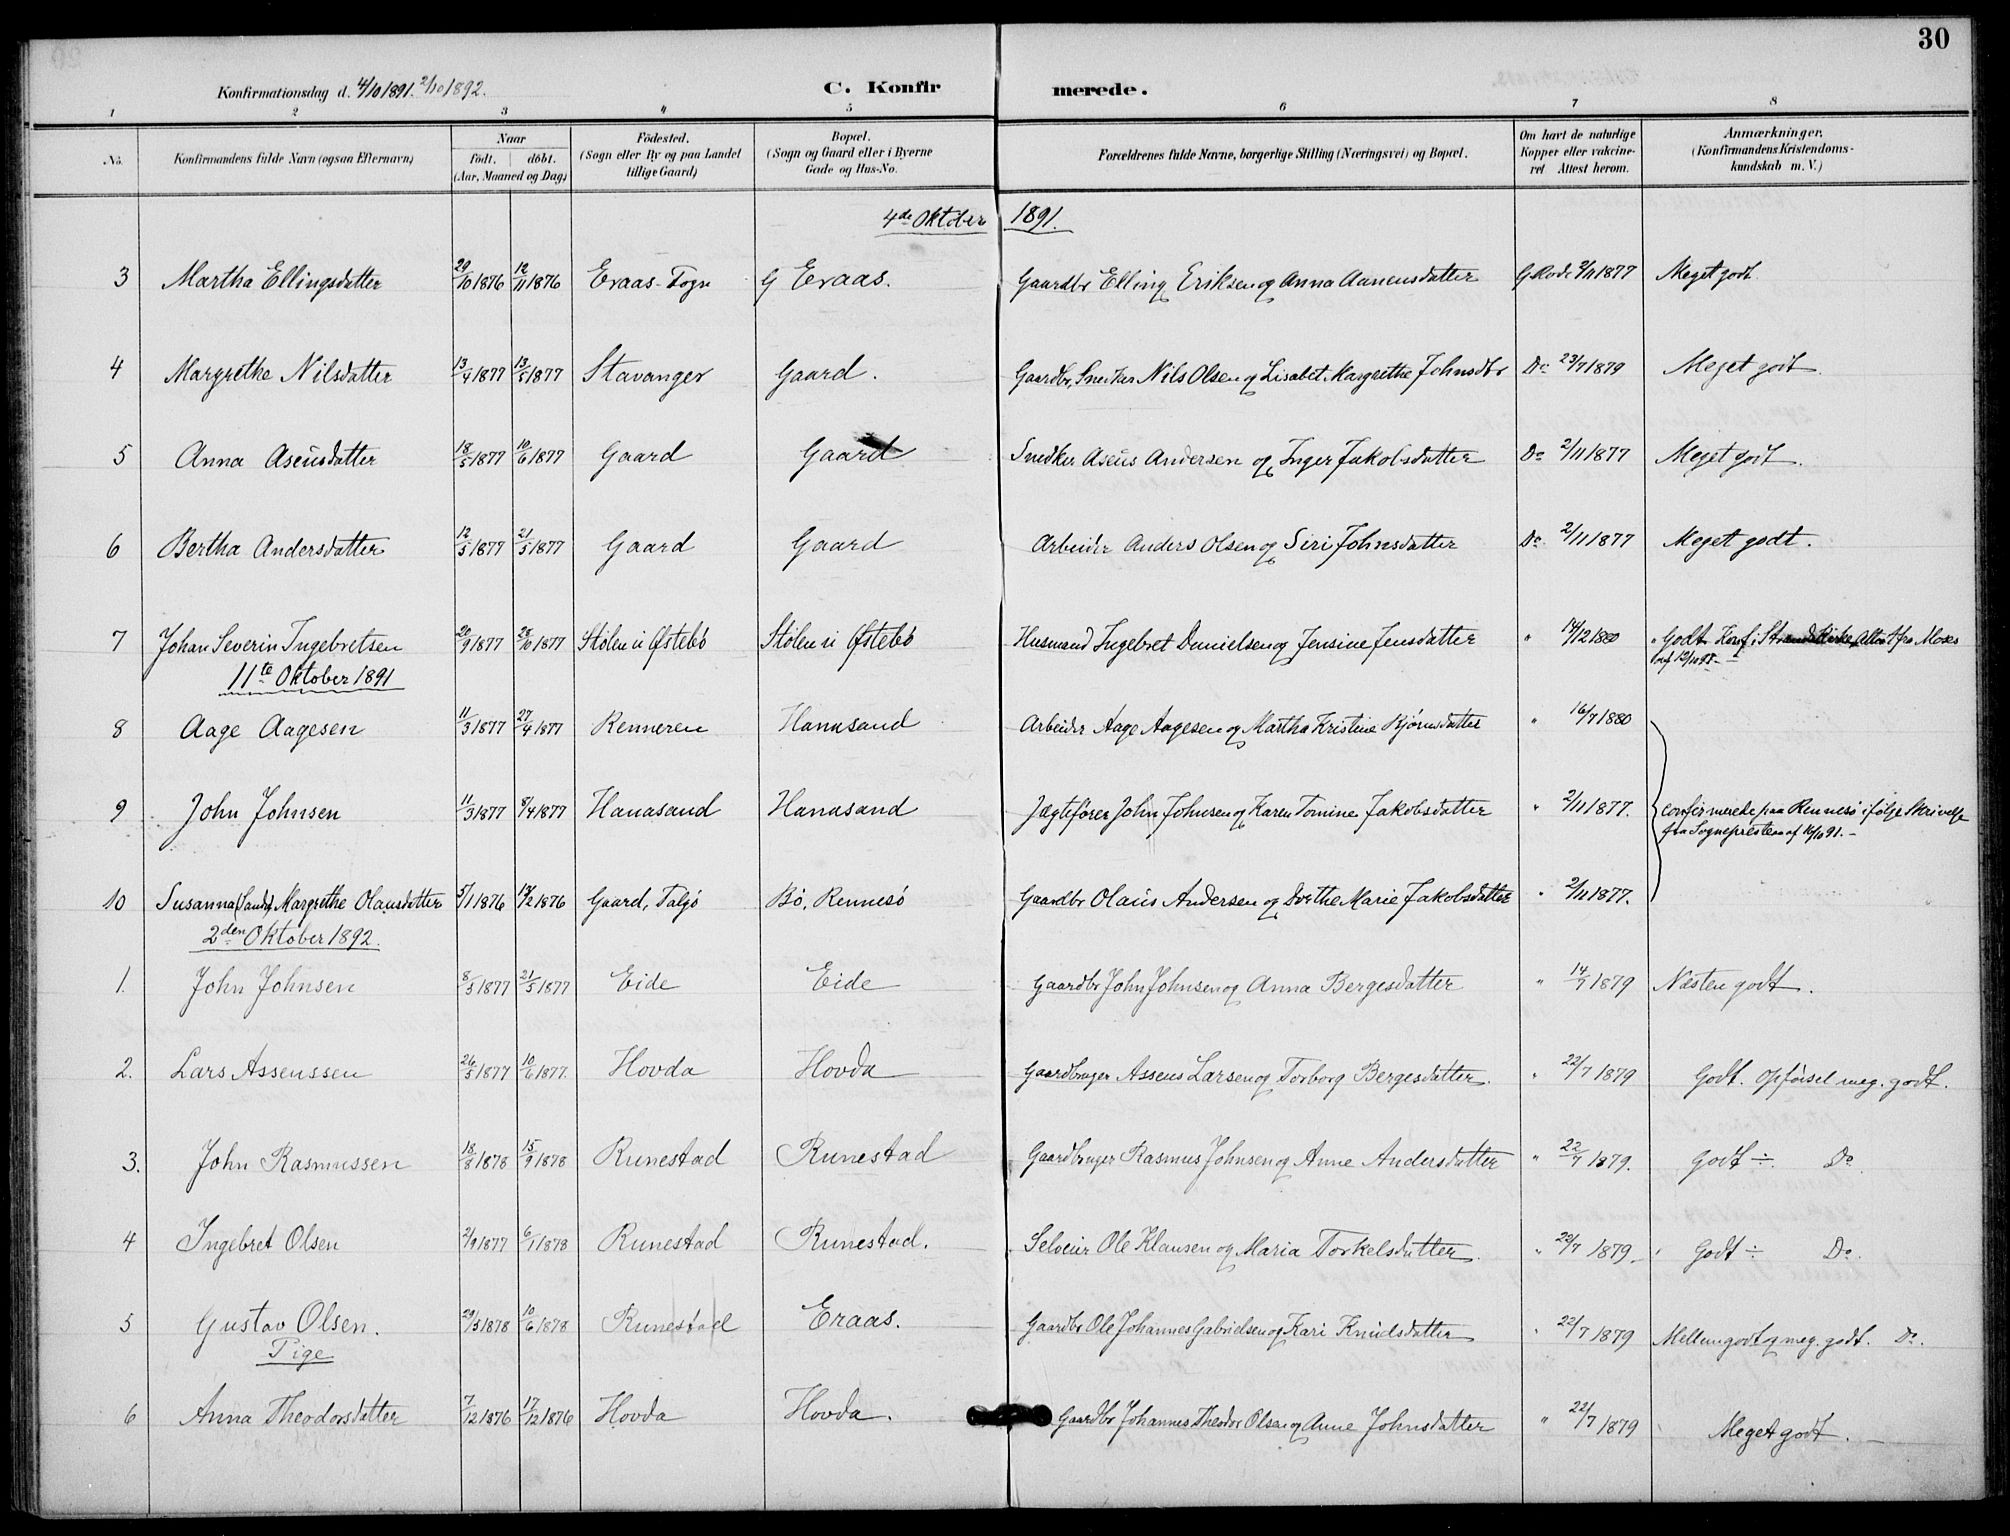 30
Konfirmationsdag d. 4/10 1891. 2/10 1892.
C. Konfirmerede.
1 2 3 4 5 6 7 8
No. Konfirmandens fulde Navn (ogsaa Efternavn) Naar födt. döbt. (Aar, Maaned og Dag) Födested. (Sogn eller By og paa Landet tillige Gaard) Bopæl. (Sogn og Gaard eller i Byerne Gade og Hus-No. Forældrenes fulde Navne, borgerlige Stilling (Næringsvei) og Bopæl. Om havt de naturlige Kopper eller vakcineret Attest herom. Anmærkninger. (Konfirmandens Kristendomskundskab m. V.)
4de Oktober 1891.
3 Martha Ellingsdatter 29/10 1876 12/11 1876 Eraas G Eraas. Gaardbr Elling Eriksen og Anna Aanensdatter 2/11 1877 Meget godt
4 Margrethe Nilsdatter 13/4 1877 13/5 1877 Stavanger Gaard. Gaardbr, Nils Olsen og Lisabet Margrethe Johnsdtr Do 23/7 1879 Meget godt.
5 Anna Aseusdatter 18/5 1877 10/6 1877 Gaard Gaard Snedker Aseus Andersen og Inger Jakobsdatter Do 2/11 1877 Meget godt.
6 Bertha Andersdatter 12/5 1877 21/5 1877 Gaard Gaard Arbeider Anders Olsen og Siri Johnsdatter Do 2/11 1877 Meget godt.
7 Johan Severin Ingebretsen 20/9 1877 28/10 1877 Stølen u Østebö Stølen u Østebö Husmand Ingebret Danielsen og Jensine Jensdatter " 14/12 1880 Godt Konf. i Strands Kirke Attest fra Moses
11te Oktober 1891
8 Aage Aagesen 11/3 1877 27/4 1877 Renneren Hanasand Arbeider Aage Aagesen og Martha Kristine Bjørnsdatter " 16/7 1880
9 John Johnsen 11/3 1877 8/4 1877 Hanasand Hanasand Jægtefører John Johnsen og Karen Tomine Jakobsdatter " 2/11 1877. confirmerede paa Rennesö ifølge Skrivelse
fra Sognepresten af 16/10 91.-
10 Susanna (Sanda) Margrethe Olausdatter 5/1 1876 13/2 1876 Gaard, Talgö Bö, Rennesö Gaardbr Olaus Andersen og Dorthe Marie Jakobsdatter " 2/11 1877.
2den Oktober 1892.
1. John Johnsen 8/5 1877 21/5 1877 Eide Eide Gaardbr John Johnsen og Anna Bergesdatter " 14/7 1879 Næsten godt.
2. Lars Assenssen 26/5 1877 10/6 1877. Hovda Hovda Gaardbruger Assens Larsen og Torborg Bergesdatter. " 22/7 1879 Godt. Opførsel meg. godt.
3. John Rasmussen 18/8 1878 15/9 1878 Runestad Runestad Gaardbruger Rasmus Johnsen og Anne Andersdatter " 22/7 1879. Godt ÷ Do
4 Ingebret Olsen 2/9 1877 6/1 1878 Runestad Runestad. Selveier Ole Klausen og Maria Torkelsdatter " 22/7 1879 Godt ÷ Do.
5 Gustav Olsen. 29/5 1878 10/6 1878 Runestad Eraas. Gaardbr Ole Johannes Gabrielsen og Kari Knudsdatter " 22/7 1879 Mellemgodt og meg. godt. Do.
Pige
6 Anna Theodorsdatter 7/12 1876 17/12 1876 Hovda Hovda. Gaardbr Johannes Theodor Olsen og Anne Johnsdatter " 22/7 1879 Meget godt.